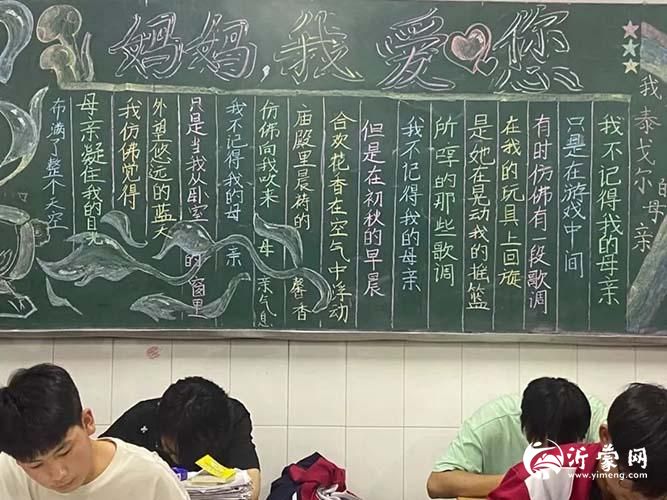 妈妈,我爱您
我 母亲
泰戈尔
我不记得我的母亲
只是在游戏中间
有时仿佛有一段歌调
在我的玩具上回旋
是她在晃动我的摇篮
所哼的那些歌调
我不记得我的母亲
但是在初秋的早晨
合欢花香在空气中浮动
庙殿里晨祷的馨香
仿佛向我吹来母亲气息
我不记得我的母亲
只是当我从卧室的窗里
外望悠远的蓝天
我仿佛觉得
母亲凝住我的目光
布满了整个天空
沂蒙网
www.yimeng.com